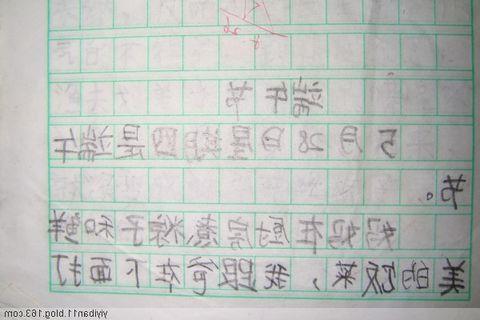 端午节
5月28日星期四是端午
节。
妈妈在厨房蒸粽子和鲜
美的饭菜，我跟何在下面打
yiyiban11.blog.163.com